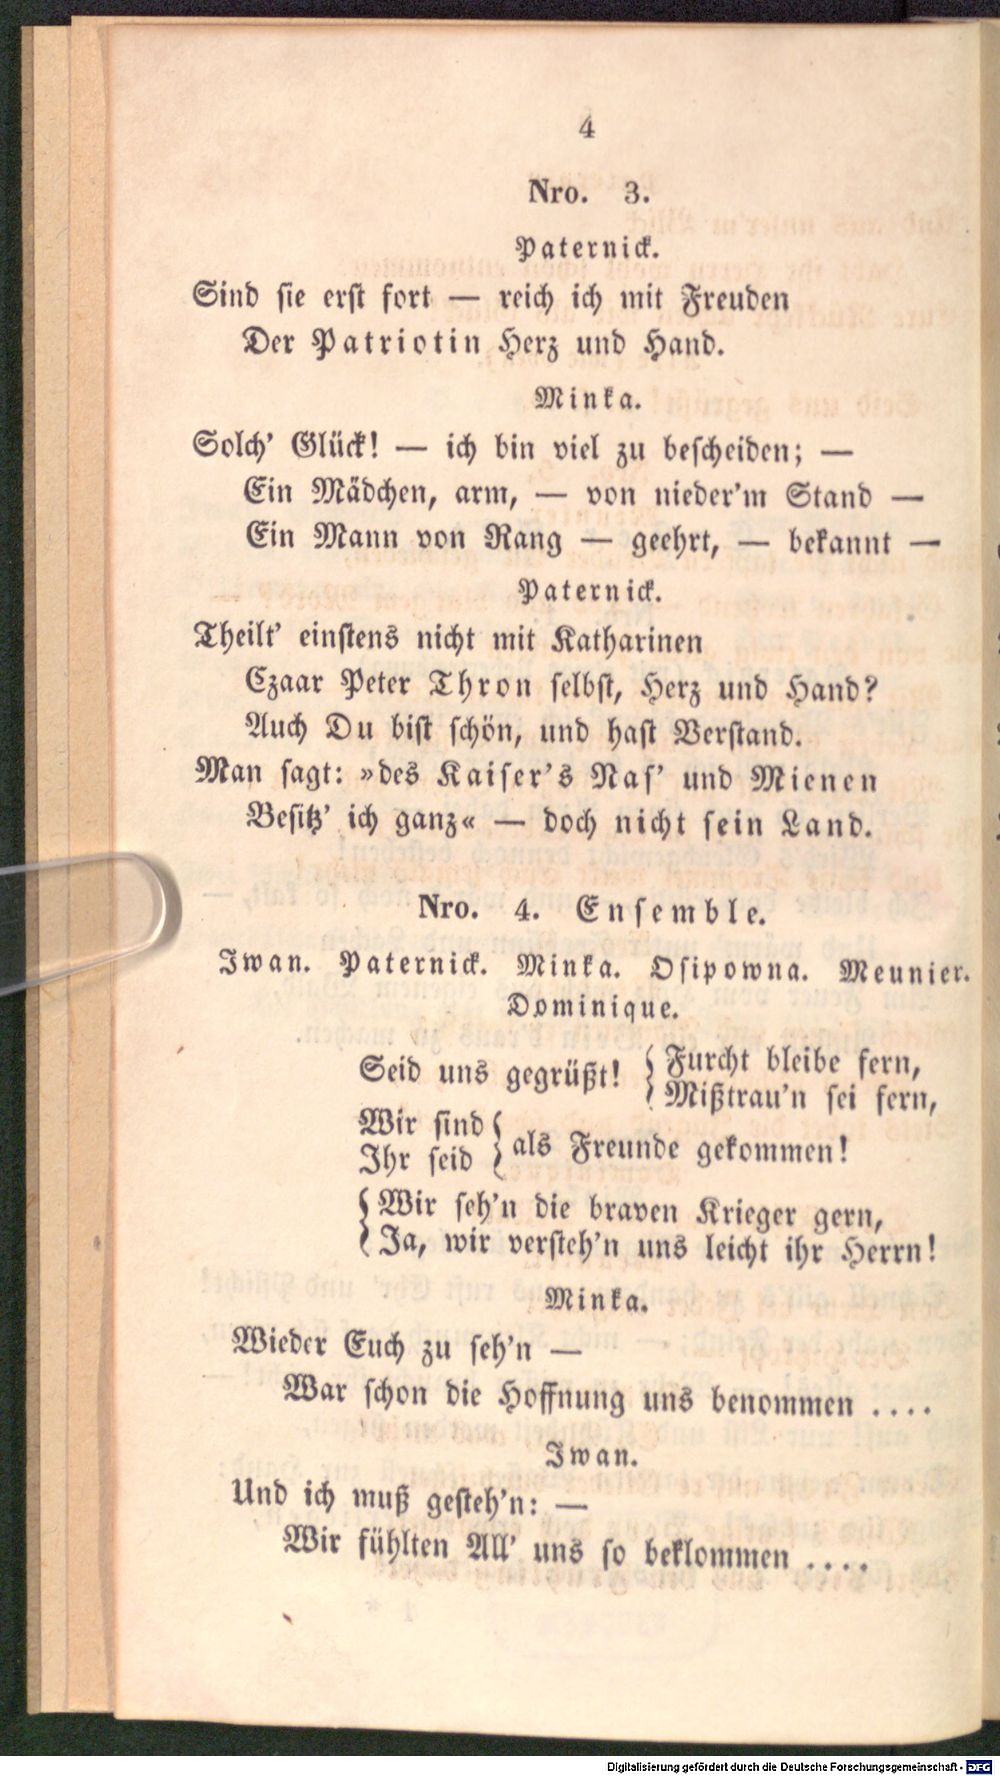 4
Nro. 3.
Paternick.
Sind sie erst fort — reich ich mit Freuden
Der Patriotin Herz und Hand.
Minka.
Solch' Glück! — ich bin viel zu bescheiden; —
Ein Mädchen, arm, — von nieder'm Stand —
Ein Mann von Rang — geehrt, — bekannt —
Paternick.
Theilt' einstens nicht mit Katharinen
Czaar Peter Thron selbst, Herz und Hand?
Auch Du bist schön, und hast Verstand.
Man sagt: »des Kaiser's Nas' und Mienen
Besitz' ich ganz« — doch nicht sein Land.
Nro. 4. Ensemble.
Iwan. Paternick. Minka. Osipowna. Meunier.
Dominique.
Seid uns gegrüßt! { Furcht bleibe fern,
{ Mißtrau'n sei fern,
Wir sind
Ihr seid } als Freunde gekommen!
{ Wir seh'n die braven Krieger gern,
{ Ja, wir versteh'n uns leicht ihr Herrn!
Minka.
Wieder Euch zu seh'n —
War schon die Hoffnung uns benommen ....
Iwan.
Und ich muß gesteh'n: —
Wir fühlten All' uns so beklommen ....
Digitalisierung gefördert durch die Deutsche Forschungsgemeinschaft - DFG